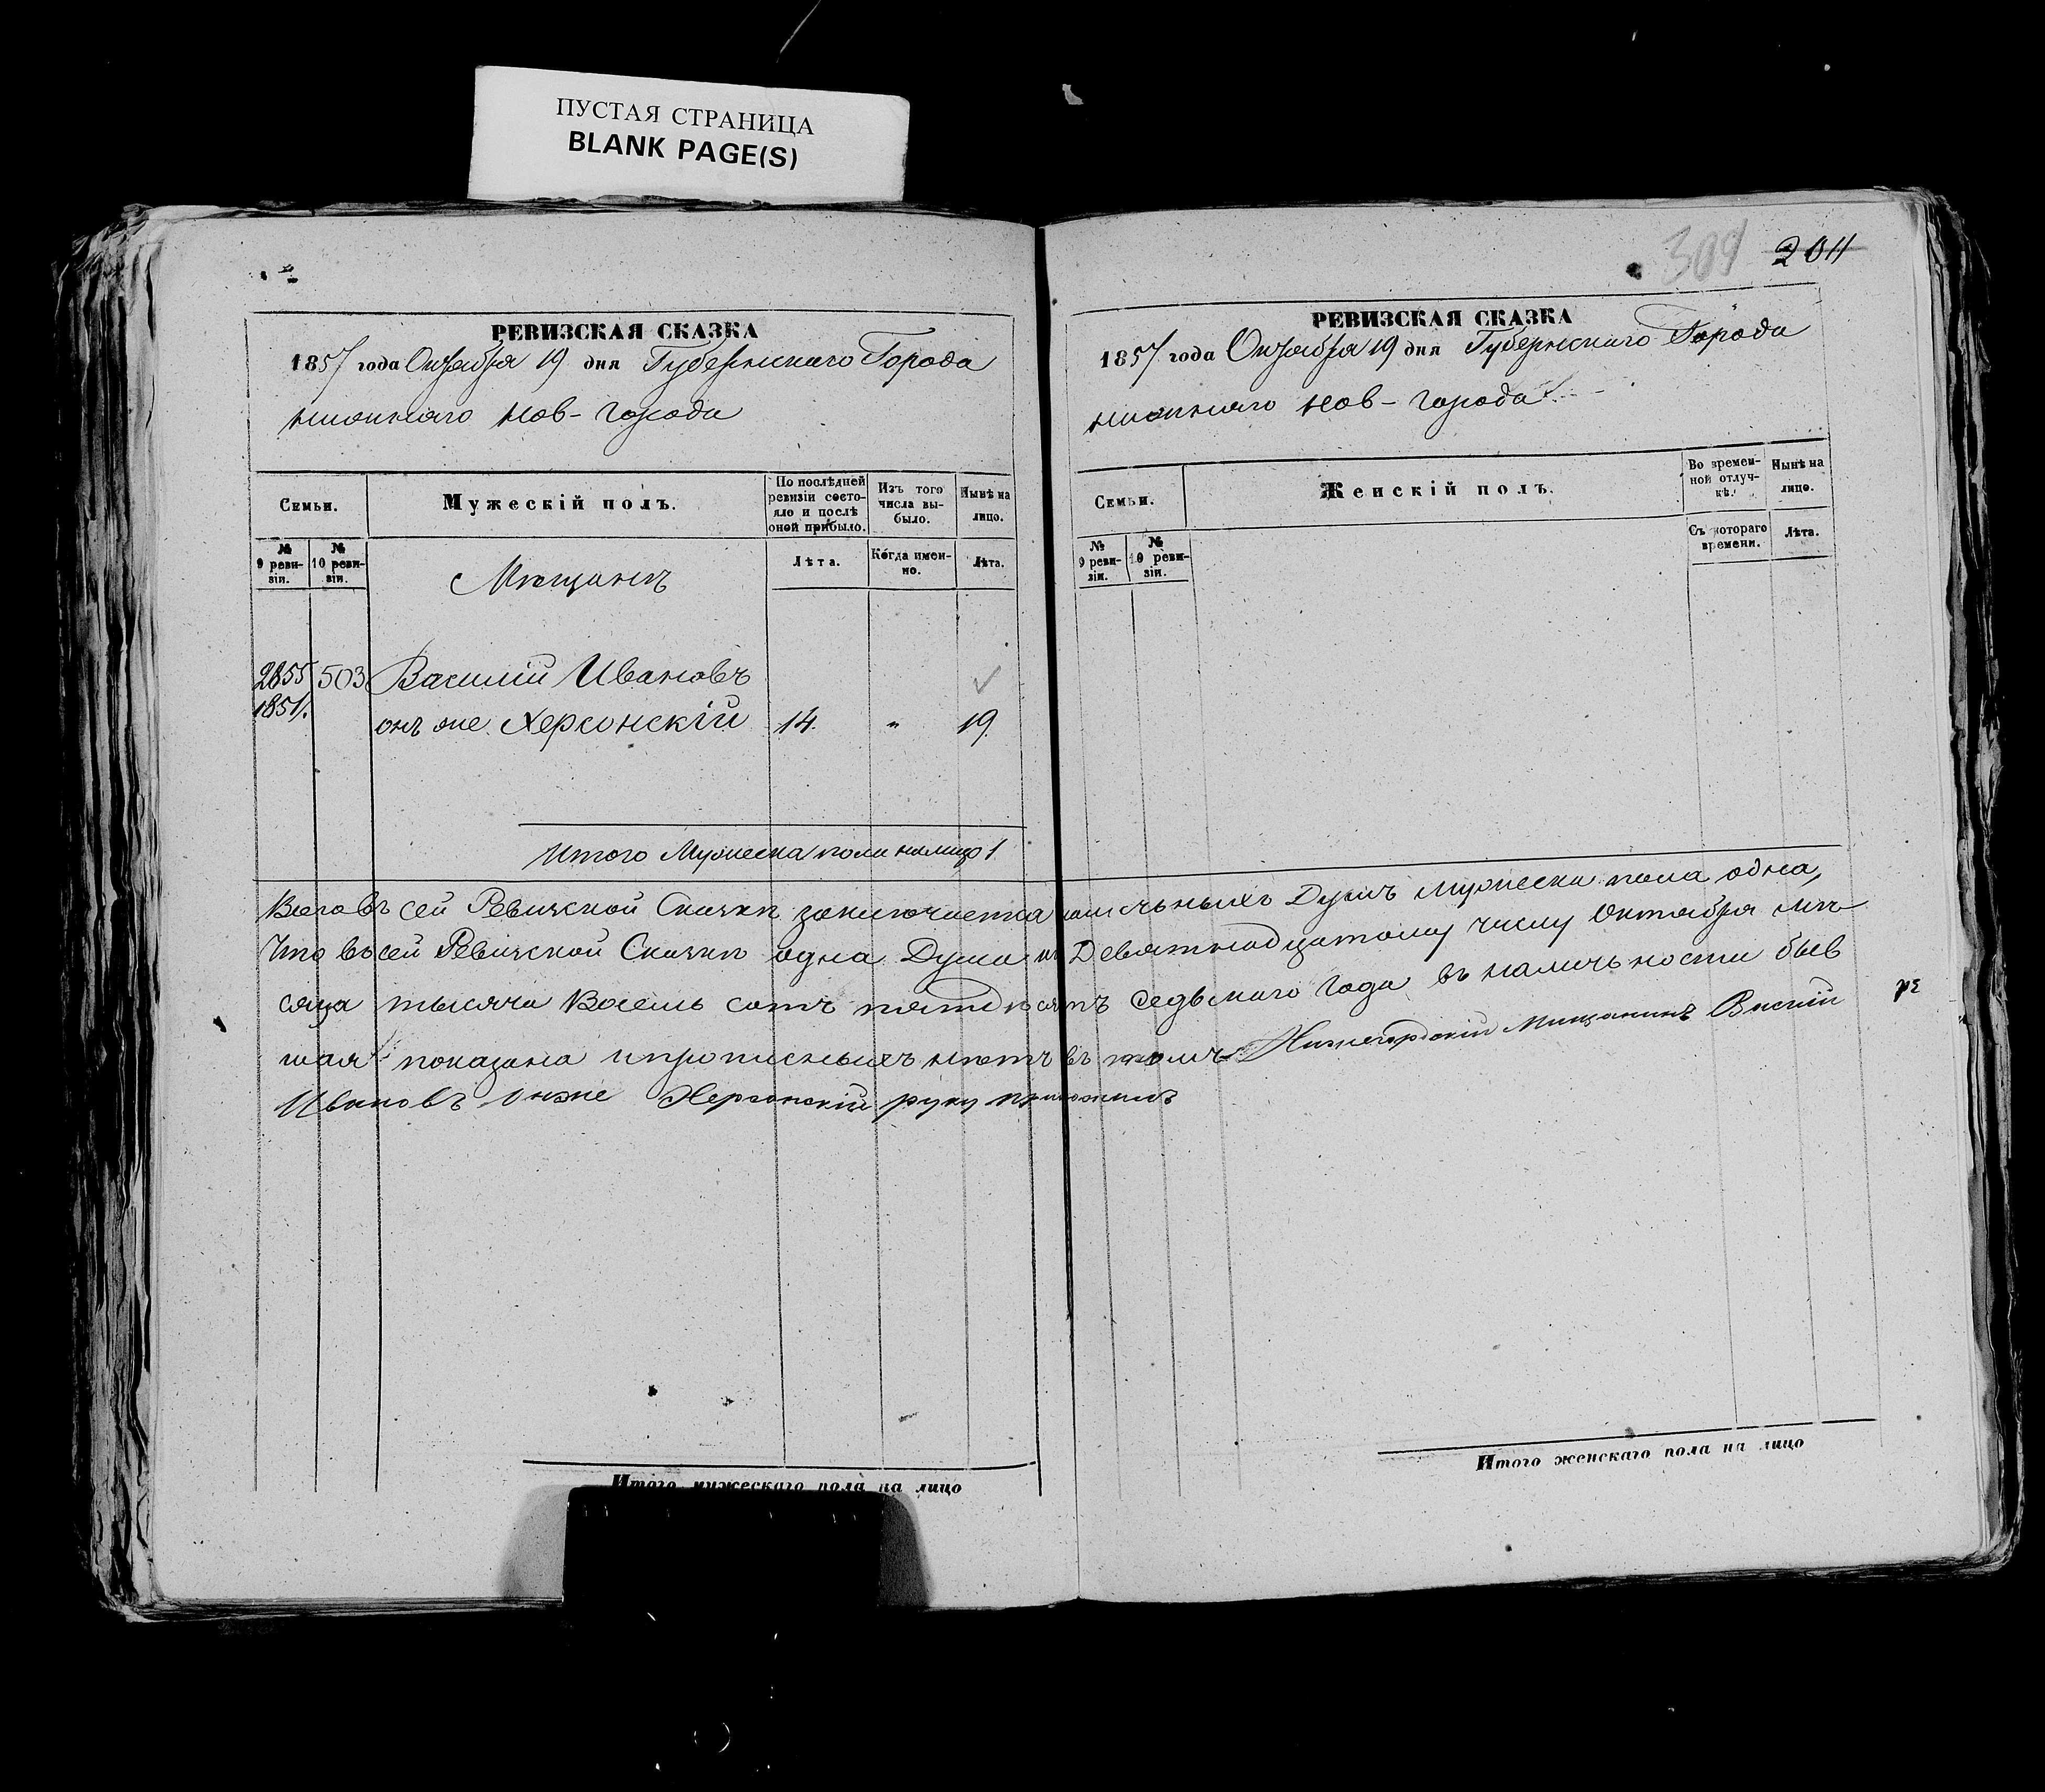 ПУСТАЯ СТРАНИЦА
BLANK PAGE(S)
РЕВИЗСКАЯ СКАЗКА
1857 года Октября 19 дня Губернскаго Города
нижняго нов-города
Семьи.
Мужескій полъ.
По послѣдней ревизіи состояло и послѣ оной прибыло.
Изъ того числа выбыло.
Нынѣ на лицо.
№ 9 ревизіи.
№ 10 ревизіи.
Мещанъ
Лѣта.
Когда именно.
Лѣта.
2855 503 Василій Ивановъ
1851. онъ же Херсонскій 14. " 19.
Итого Мужеска пола налицо 1
309 2011
РЕВИЗСКАЯ СКАЗКА
1857 года Октября 19 дня Губернскаго Города
нижняго нов-города
Семьи.
Женскій полъ.
Во временной отлучкѣ.
Нынѣ на лицо.
№ 9 ревизіи.
№ 10 ревизіи.
Съ котораго времени.
Лѣта.
Всего въ сей Ревизской Сказкѣ заключается наличьныхъ Душъ мужеска пола одна,
Что въ сей Ревизской Сказкѣ одна Душа къ Девятнадцатому числу Октября мѣ
сяца тысяча Восемь сотъ пятдѣсятъ седьмаго Года въ наличьности быв
шая показана и прописныхъ нѣтъ въ томъ Нижегородскій Мищанинъ Васлій
Ивановъ Онже Херсонскій руку приложилъ
Итого мужескаго пола на лицо
Итого женскаго пола на лицо